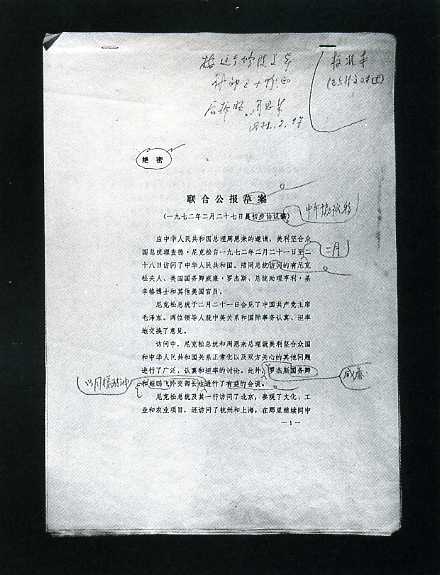 绝密
联合公报草案
(一九七二年二月二十七日晨初步协议稿)
二月
应中华人民共和国总理周恩来的邀请,美利坚合众
国总统理查德·尼克松自一九七二年二月二十一日至二
十八日访问了中华人民共和国。陪同总统访问的有尼克
松夫人、美国国务卿威廉·罗杰斯、总统助理亨利·基
辛格博士和其他美国官员。
尼克松总统于二月二十一日会见了中国共产党主席
毛泽东。两位领导人就中美关系和国际事务认真、坦率
地交换了意见。
访问中,尼克松总统和周恩来总理就美利坚合众国
和中华人民共和国关系正常化以及双方关心的其他问题
进行了广泛、认真和坦率的讨论。此外,罗杰斯国务卿
威廉
和姬鹏飞外交部长也进行了有益的会谈。
尼克松总统及其一行访问了北京,参观了文化、工
业和农业项目,还访问了杭州和上海,在那里继续同中
—1—